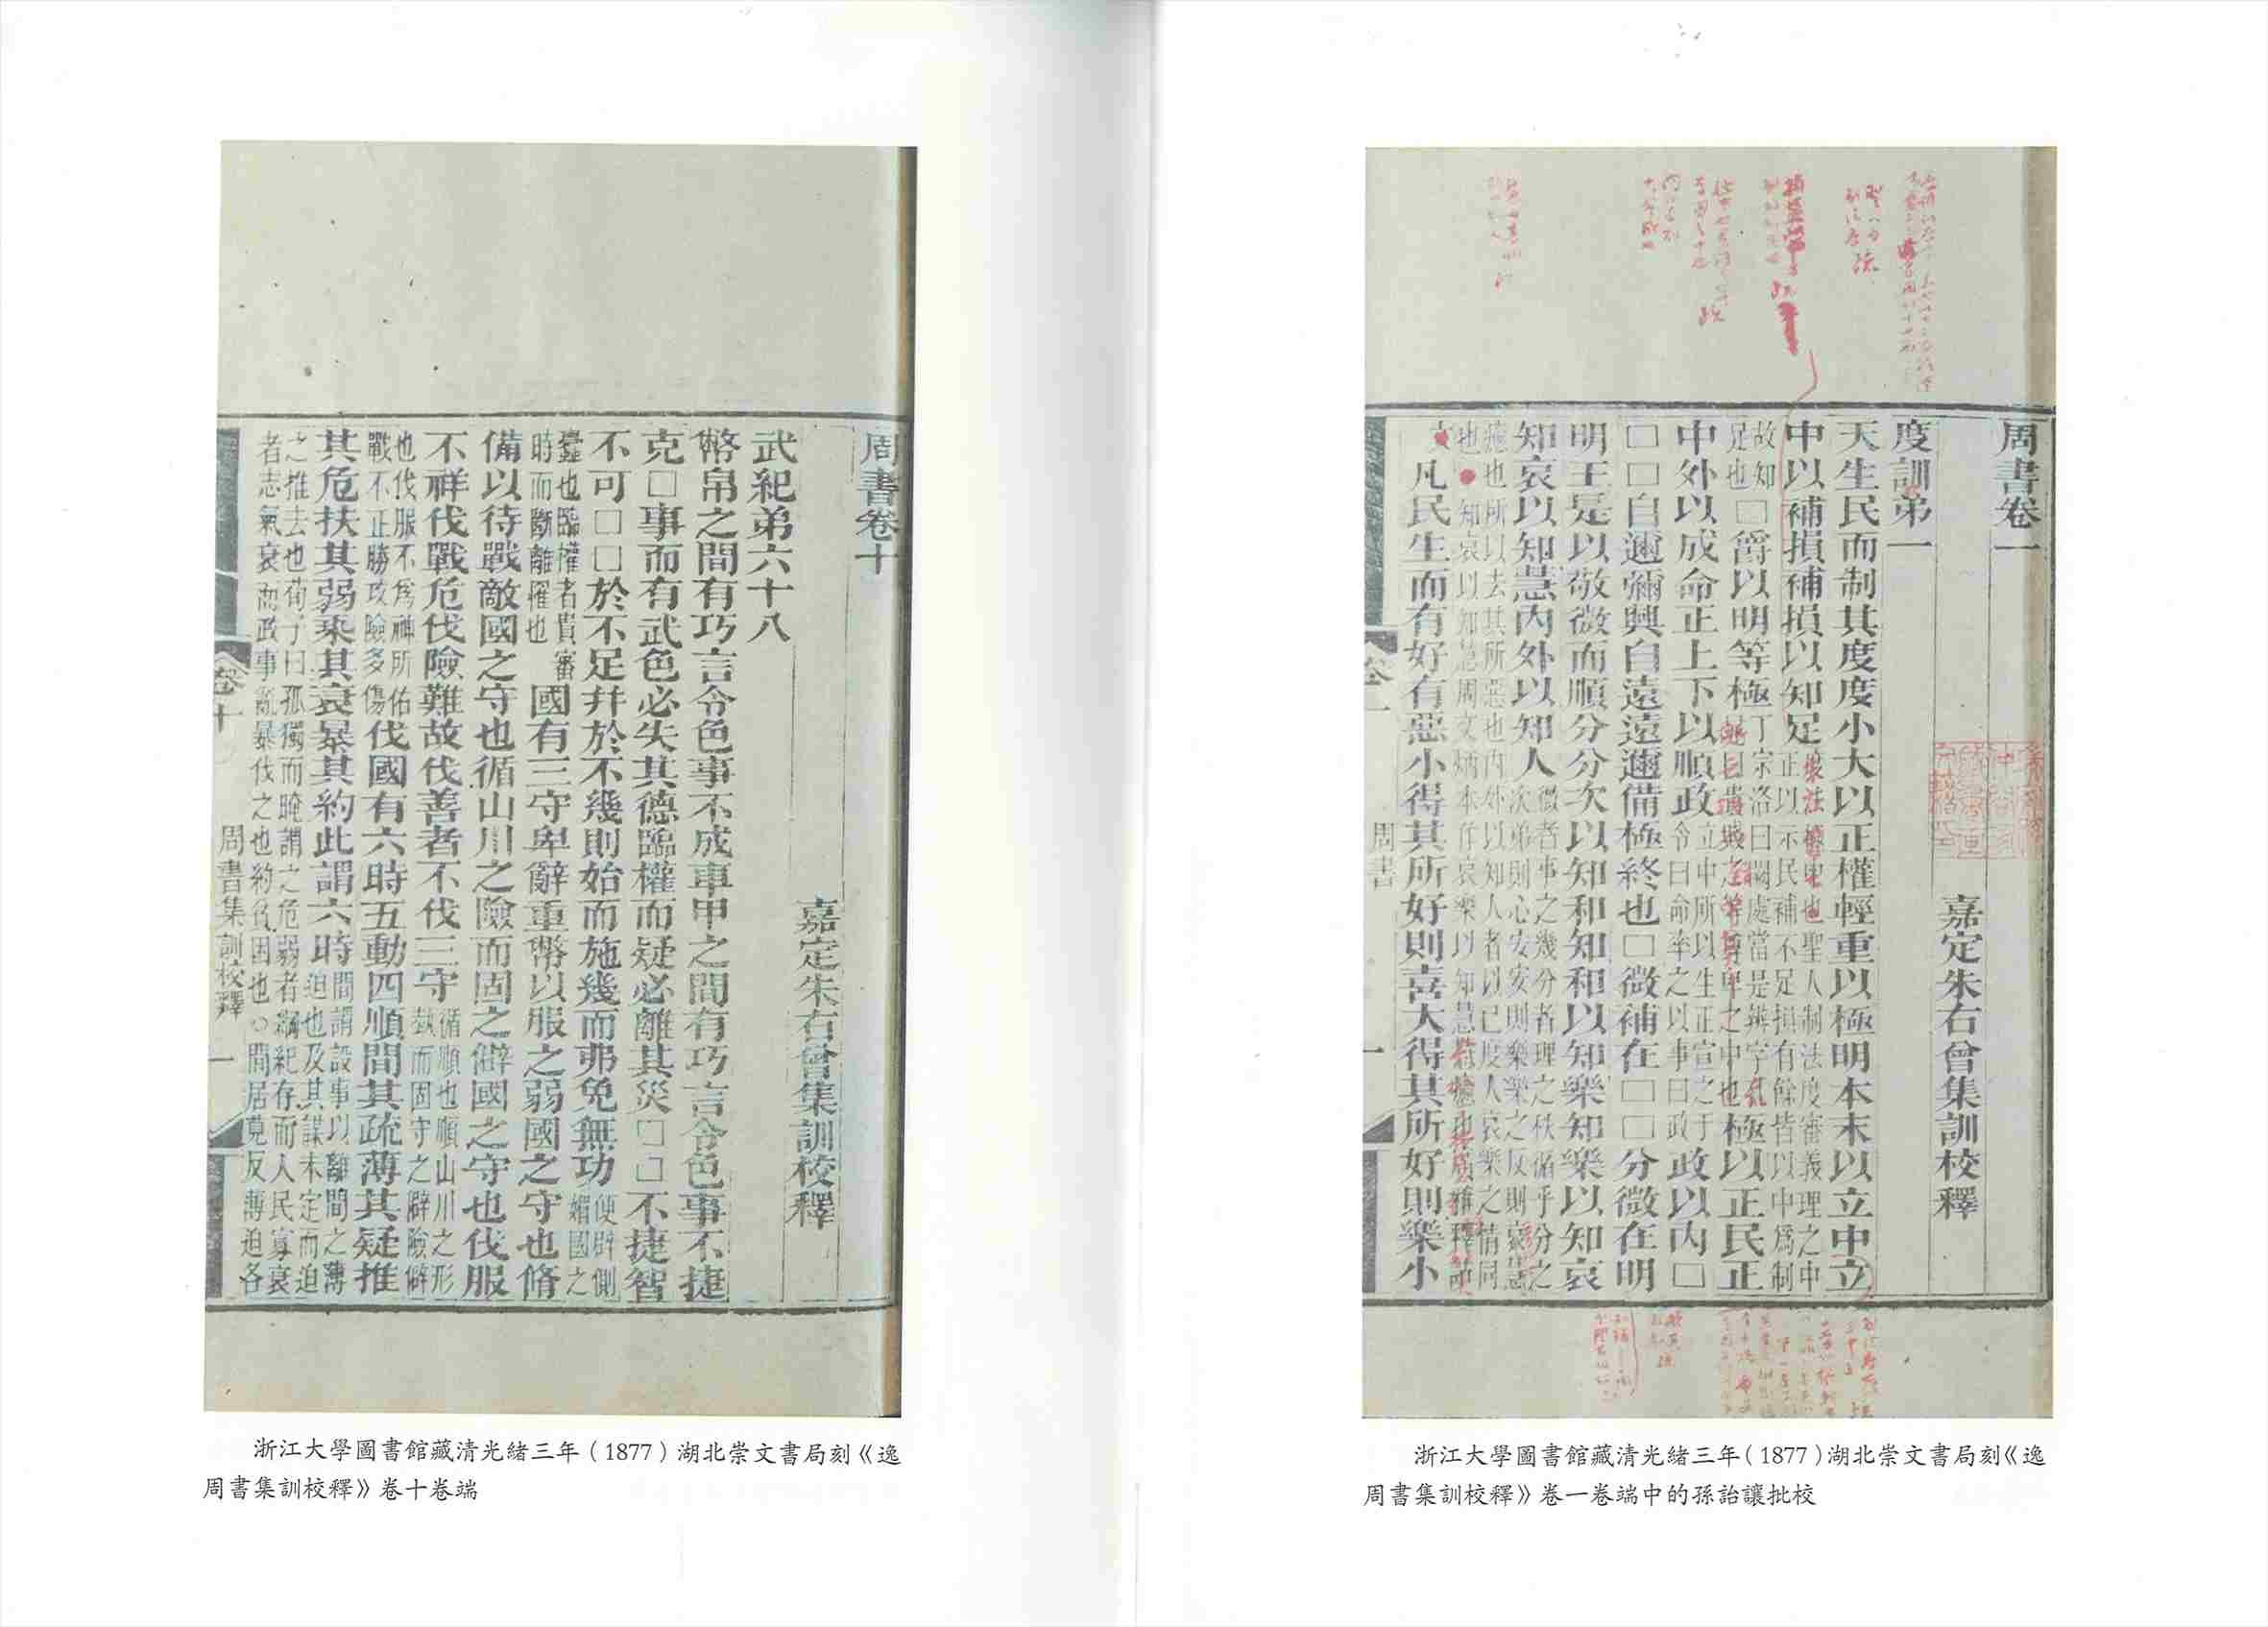 周書卷一
嘉定朱右曾集訓校釋
度訓弟一
天生民而制其度度小大以正權輕重以極明本末以立中立
中以補損補損以知足法也聖人制法度審義理之中正以示民補不足損有餘皆以中爲制
故知足也□爵以明等極丁宗洛曰闕處當是辨字之等尊卑之中也極以正民正
中外以成命正上下以順政立中所以生正宣之于令曰命率之以事曰政政以内□
□□自邇彌興自遠遠邇備極終也□微補在□□分微在明
明王是以敬微而順分分次以知和知和以知樂知樂以知哀
知哀以知慧内外以知人微者事之幾分者理之秩循乎分之次弟則心安安則樂樂之反則哀慧
瘉也所以去其所惡也内外以知人者以己度人哀樂之情同也知哀以知慧周文炳本作哀樂以知慧
凡民生而有好有惡小得其所好則喜大得其所好則樂小
卷一 周書 一
浙江大學圖書館藏清光緒三年（1877）湖北崇文書局刻《逸
周書集訓校釋》卷一卷端中的孫詒讓批校
周書卷十
嘉定朱右曾集訓校釋
武紀弟六十八
幣帛之間有巧言令色事不成車甲之間有巧言令色事不捷
克□事而有武色必失其德臨權而疑必離其災□□不捷智
不可□□於不足幷於不幾則始而施幾而弗免無功便辟側媚國之
蠹也臨權者貴審時而斷離罹也國有三守卑辭重幣以服之弱國之守也脩
備以待戰敵國之守也循山川之險而固之僻國之守也伐服
不祥伐戰危伐險難故伐善者不伐三守循順也順山川之形埶而固守之辟險僻
也伐服不爲神所佑戰不正勝攻險多傷伐國有六時五動四順間其疏薄其疑推
其危扶其弱乘其衰暴其約此謂六時間謂設事以離間之薄迫也及其謀未定而迫
之推去也荀子曰孤獨而晻謂之危弱者綱紀存而人民寡衰者志氣衰而政事亂暴伐之也約㐲困也○間居莧反薄迫各
卷十 周書集訓校釋 一
浙江大學圖書館藏清光緒三年（1877）湖北崇文書局刻《逸
周書集訓校釋》卷十卷端